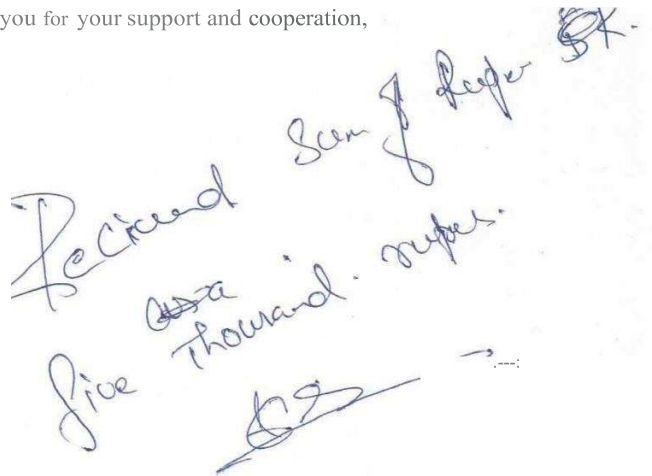 you for your support and cooperation,
Recieved Sum of Rupee 5K.
five Thousand. rupees.